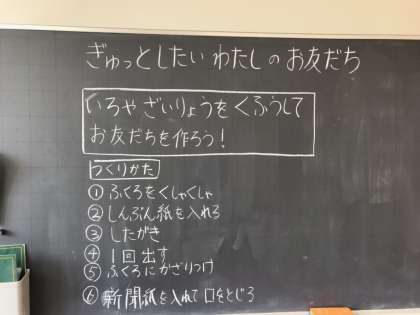 ぎゅっとしたい わたしの お友だち
いろや ざいりょうを くふうして
お友だちを作ろう!
つくりかた
① ふくろをくしゃくしゃ
② しんぶん紙を入れる
③ したがき
④ 1回出す
⑤ ふくろにかざりつけ
⑥ 新聞紙を入れて口をとじる